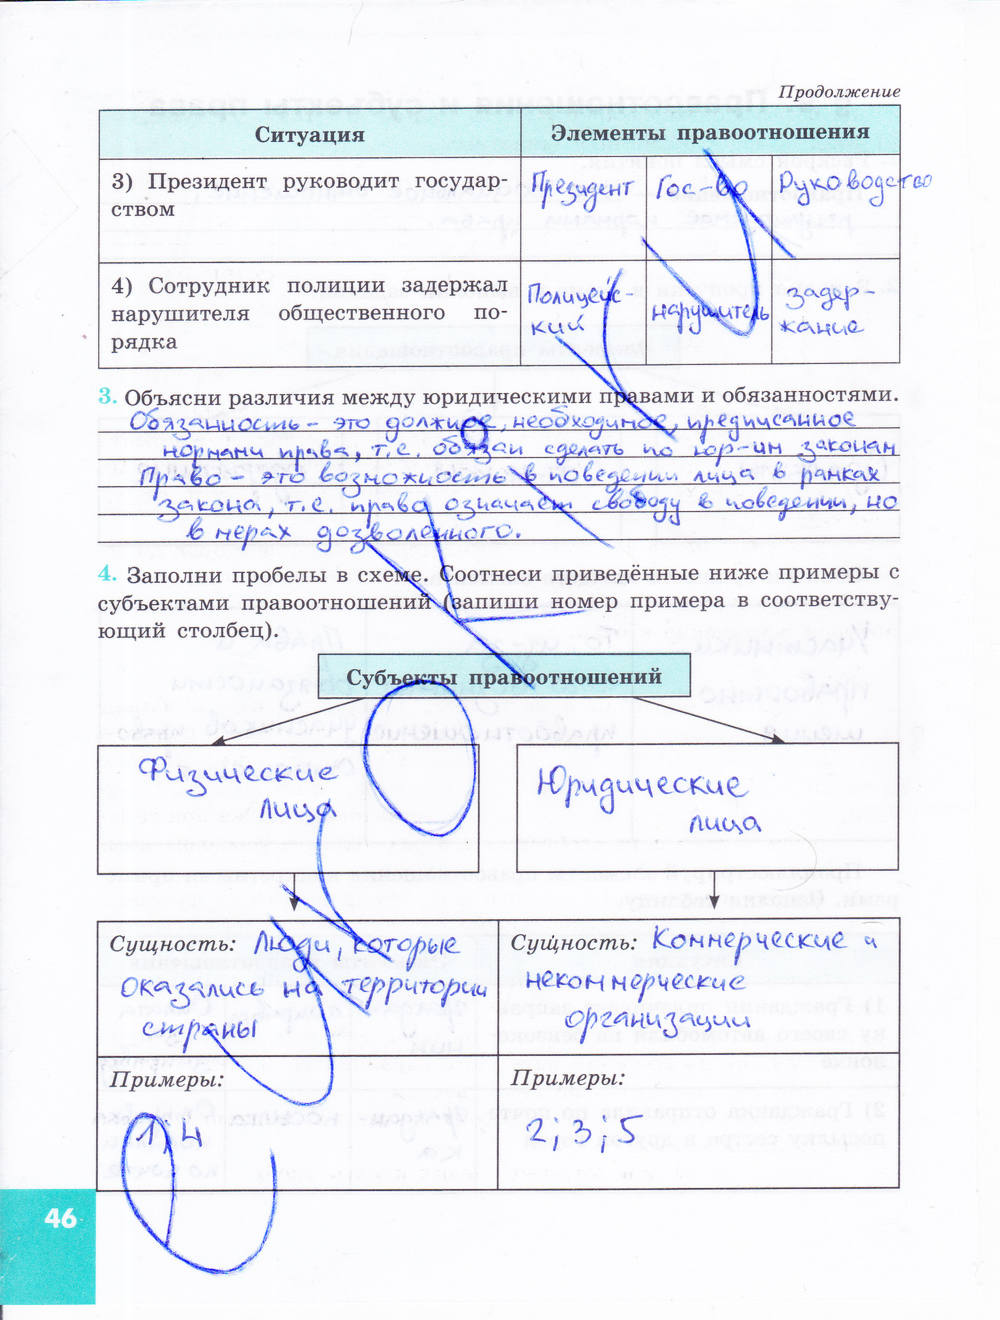 Продолжение
Ситуация Элементы правоотношения
3) Президент руководит государ- Президент Гос-во Руководство
ством
4) Сотрудник полиции задержал Полицейс- нарушитель Задер-
нарушителя общественного по- кий жание
рядка
3. Объясни различия между юридическими правами и обязанностями.
Обязанность - это должное, необходимое, предписанное
нормами права, т.е. обязан сделать по юр-им законам
Право - это возможность в поведении лица в рамках
закона, т.е. право означает свободу в поведении, но
в мерах дозволенного.
4. Заполни пробелы в схеме. Соотнеси приведённые ниже примеры с
субъектами правоотношений (запиши номер примера в соответству-
ющий столбец).
Субъекты правоотношений
Физические
лица
Юридические
лица
Сущность: Люди, которые
оказались на территории
страны
Сущность: Коммерческие и
некоммерческие
организации
Примеры:
1; 4
Примеры:
2; 3; 5
46